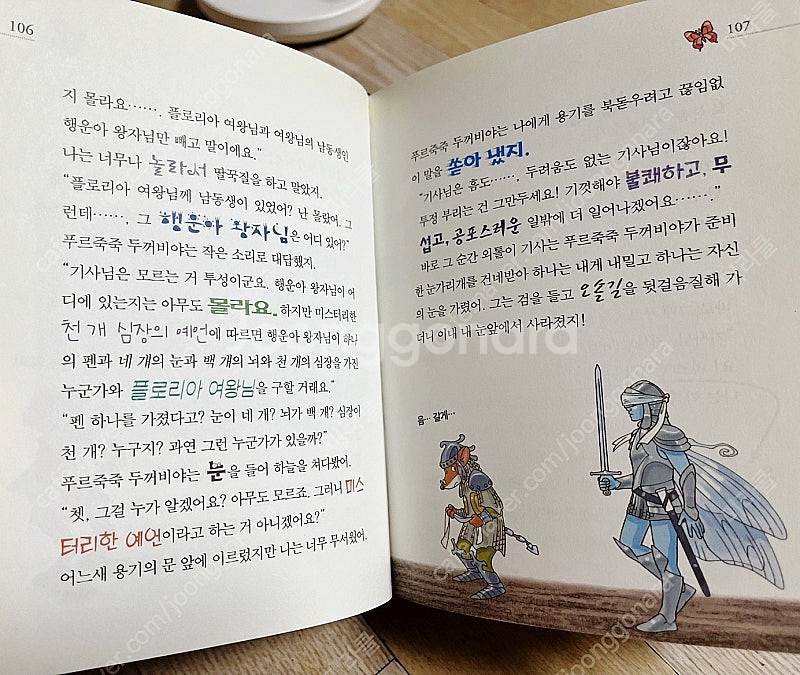 106
지 몰라요……. 플로리아 여왕님과 여왕님의 남동생인
행운아 왕자님만 빼고 말이에요."
나는 너무나 놀라서 딸꾹질을 하고 말았지.
"플로리아 여왕님께 남동생이 있었어? 난 몰랐어. 그
런데……, 그 행운아 왕자님은 어디 있어?"
푸르죽죽 두꺼비야는 작은 소리로 대답했지.
"기사님은 모르는 거 투성이군요. 행운아 왕자님이 어
디에 있는지는 아무도 몰라요. 하지만 미스터리한
천 개 심장의 예언에 따르면 행운아 왕자님이 하나
의 펜과 네 개의 눈과 백 개의 뇌와 천 개의 심장을 가진
누군가와 플로리아 여왕님을 구할 거래요."
"펜 하나를 가졌다고? 눈이 네 개? 뇌가 백 개? 심장이
천 개? 누구지? 과연 그런 누군가가 있을까?"
푸르죽죽 두꺼비야는 눈을 들어 하늘을 쳐다봤어.
"쳇, 그걸 누가 알겠어요? 아무도 모르죠. 그러니 미스
터리한 예언이라고 하는 거 아니겠어요?"
어느새 용기의 문 앞에 이르렀지만 나는 너무 무서웠어.
107
푸르죽죽 두꺼비야는 나에게 용기를 북돋우려고 끊임없
이 말을 쏟아 냈지.
"기사님은 흠도……, 두려움도 없는 기사님이잖아요!
투정 부리는 건 그만두세요! 기껏해야 불쾌하고, 무
섭고, 공포스러운 일밖에 더 일어나겠어요……."
바로 그 순간 외톨이 기사는 푸르죽죽 두꺼비야가 준비
한 눈가리개를 건네받아 하나는 내게 내밀고 하나는 자신
의 눈을 가렸어. 그는 검을 들고 오솔길을 뒷걸음질해 가
더니 이내 내 눈앞에서 사라졌지!
음… 갈게…
joonggonara